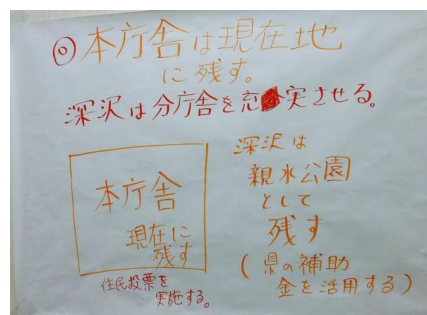 ◎本庁舎は現在地
に残す。
深沢は分庁舎を充実させる。
本庁舎
現在に
残す
住民投票を
実施する。
深沢は
親水公園
として
残す
(県の補助
金を活用する)